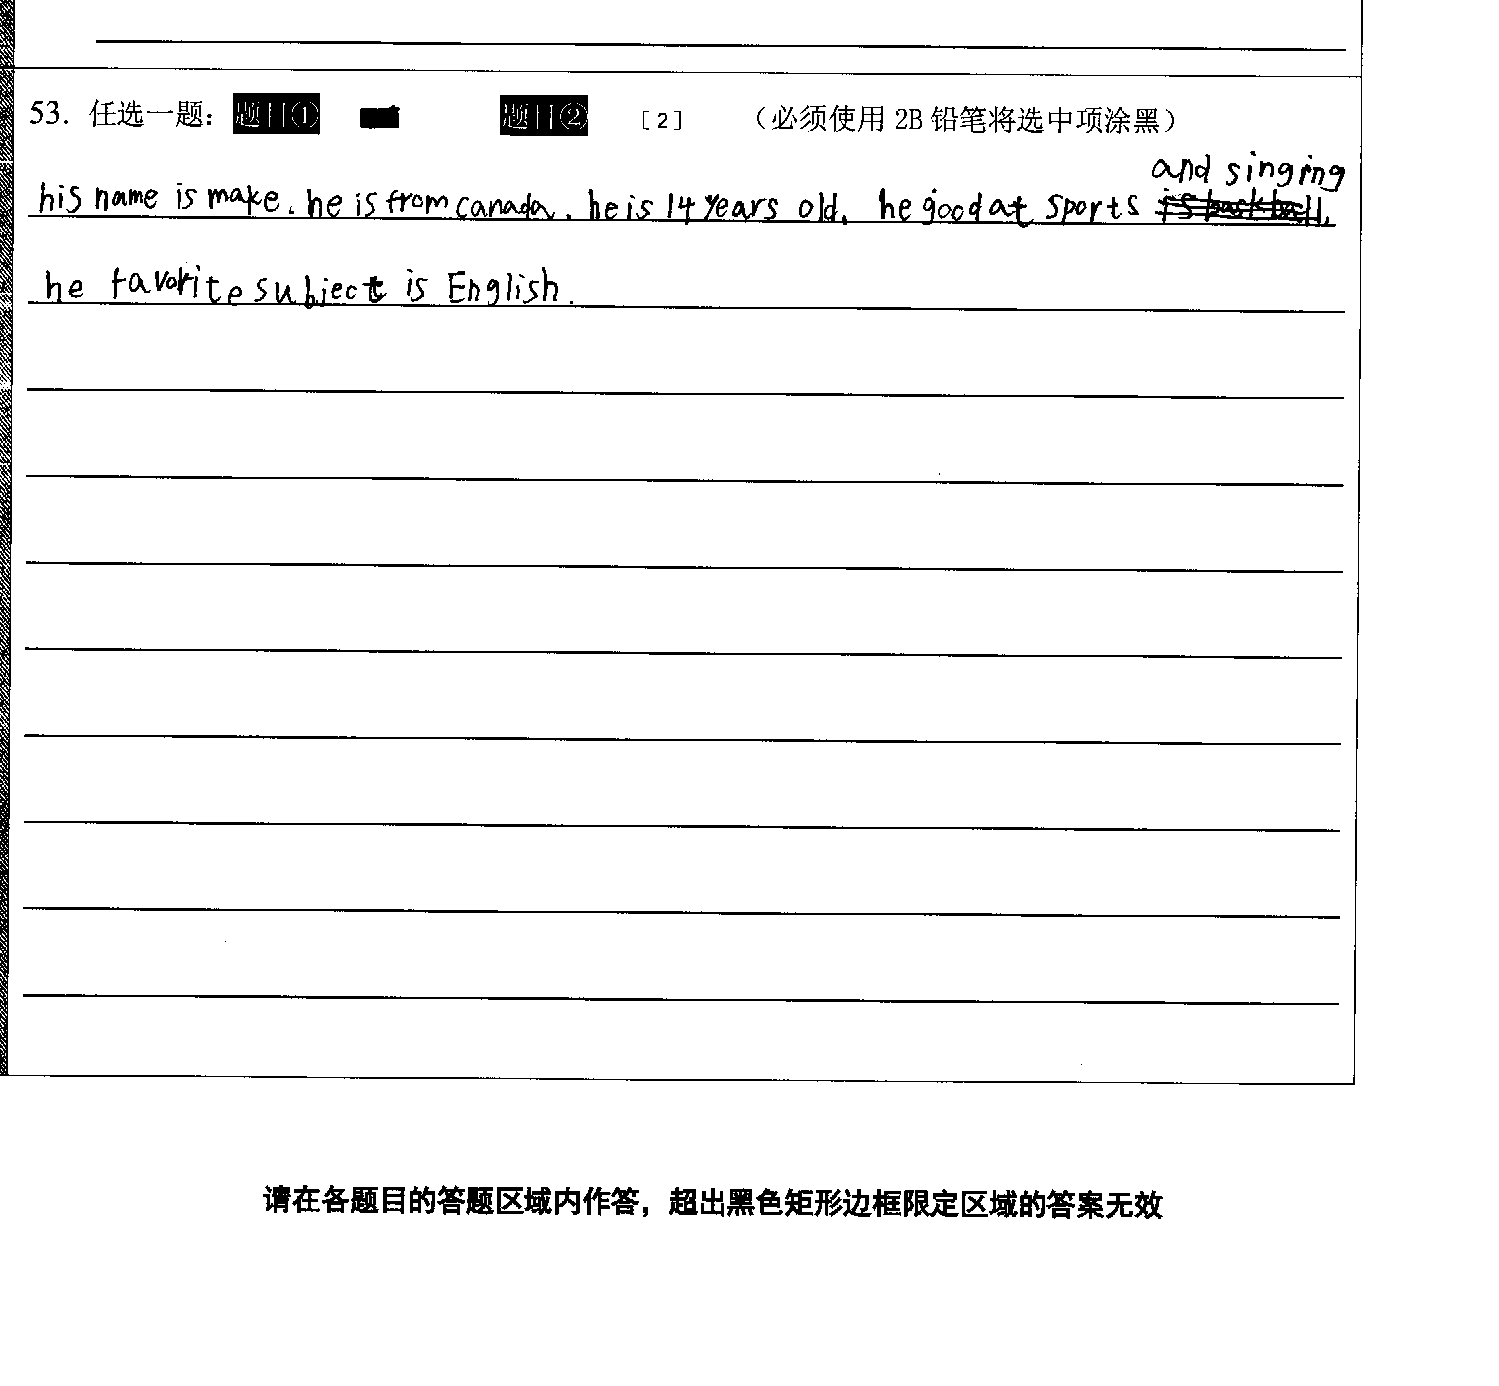 53. 任选一题： 题目① 题目② [2] （必须使用 2B 铅笔将选中项涂黑）
and singing
his name is make. he is from canada. he is 14 years old. he good at sports
he favorite subject is English.
请在各题目的答题区域内作答，超出黑色矩形边框限定区域的答案无效